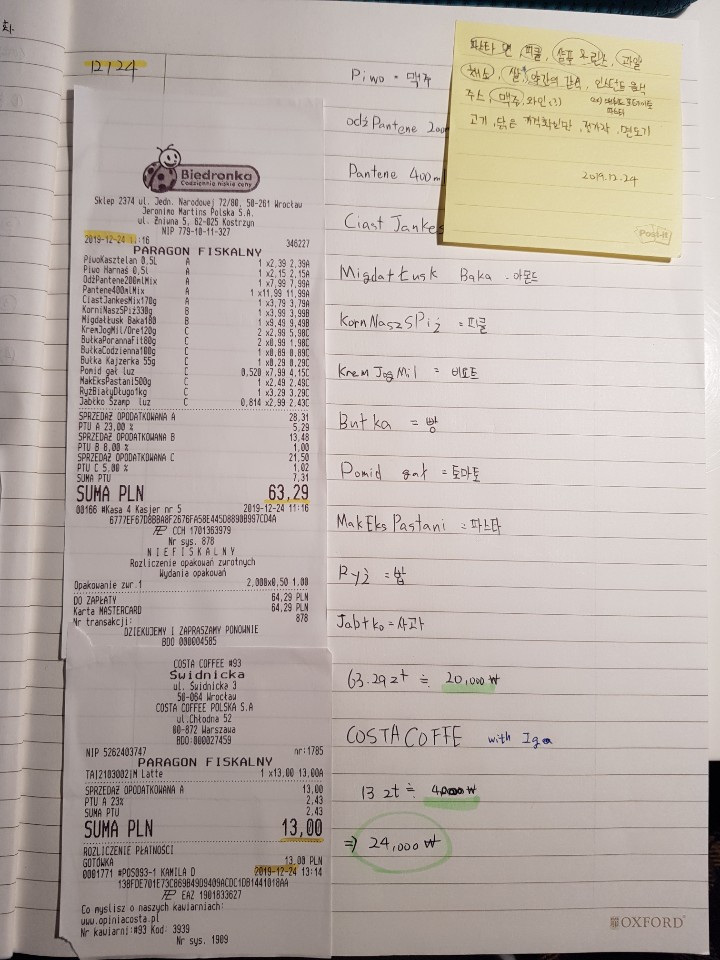 12/24
Biedronka
Codziennie niskie ceny
Sklep 2374 ul. Jedn. Narodowej 72/80, 50-261 Wrocław
Jeronimo Martins Polska S.A.
ul. Żniwna 5, 62-025 Kostrzyn
NIP 779-10-11-327
2019-12-24 11:16 346227
PARAGON FISKALNY
PiwoKasztelan 0,5l A 1 x2,39 2,39A
Piwo Harnaś 0,5L A 1 x2,15 2,15A
OdżPantene200mlMix A 1 x7,99 7,99A
Pantene400mlMix A 1 x11,99 11,99A
CiastJankesMix170g A 1 x3,79 3,79A
KorniNaszSPiż330g B 1 x3,99 3,99B
MigdałŁusk Baka180 B 1 x9,49 9,49B
KremJogMil/Ore120g C 2 x2,99 5,98C
BułkaPorannaFit80g C 2 x0,99 1,98C
BułkaCodzienna100g C 1 x0,89 0,89C
Bułka Kajzerka 55g C 1 x0,29 0,29C
Pomid gał luz C 0,520 x7,99 4,15C
MakEksPastani500g C 1 x2,49 2,49C
RyżBiałyDługo1kg C 1 x3,29 3,29C
Jabłko Szamp luz C 0,814 x2,99 2,43C
SPRZEDAŻ OPODATKOWANA A 28,31
PTU A 23,00 % 5,29
SPRZEDAŻ OPODATKOWANA B 13,48
PTU B 8,00 % 1,00
SPRZEDAŻ OPODATKOWANA C 21,50
PTU C 5,00 % 1,02
SUMA PTU 7,31
SUMA PLN 63,29
00166 #Kasa 4 Kasjer nr 5 2019-12-24 11:16
6777EF67D8BBA8F2676FA58E445D8890B997CD4A
CCH 1701363979
Nr sys. 878
NIEFISKALNY
Rozliczenie opakowań zwrotnych
Wydania opakowań
Opakowanie zwr.1 2,000x0,50 1,00
DO ZAPŁATY 64,29 PLN
Karta MASTERCARD 64,29 PLN
Nr transakcji: 878
DZIĘKUJEMY I ZAPRASZAMY PONOWNIE
BDO 000004585
COSTA COFFEE #93
Świdnicka
ul. Świdnicka 3
50-064 Wrocław
COSTA COFFEE POLSKA S.A
ul.Chłodna 52
00-872 Warszawa
BDO:000027459
NIP 5262403747 nr:1785
PARAGON FISKALNY
TA|2103002|M Latte 1 x13,00 13,00A
SPRZEDAŻ OPODATKOWANA A 13,00
PTU A 23% 2,43
SUMA PTU 2,43
SUMA PLN 13,00
ROZLICZENIE PŁATNOŚCI
GOTÓWKA 13,00 PLN
0001771 #POS093-1 KAMILA D 2019-12-24 13:14
138FDE701E73C869B49D9409ACDC1DB1441018AA
EAZ 1901833627
Co myślisz o naszych kawiarniach:
www.opiniacosta.pl
Nr kawiarni:#93 Kod: 3939
Nr sys. 1909
Piwo · 맥주
odż Pantene 200m
Pantene 400ml
Ciast Jankes
Migdał Łusk Baka - 아몬드
KornNaszSPiż = 피클
Krem JogMil = 비요뜨
Butka = 빵
Pomid gał = 토마토
MakEksPastani = 파스타
Ryż = 밥
Jabłko = 사과
63.29zł ≒ 20,000₩
COSTA COFFE with Iga
13 zł ≒ 4000₩
⇒ 24,000₩
파스타 면, 피클, 샴푸 & 린스, 과일
채소, 쌀, 약간의 간식, 인스턴트 음식
주스, 맥주, 와인(3)
파스타
고기, 닭은, 면도기
2019.12.24
Post-it
OXFORD